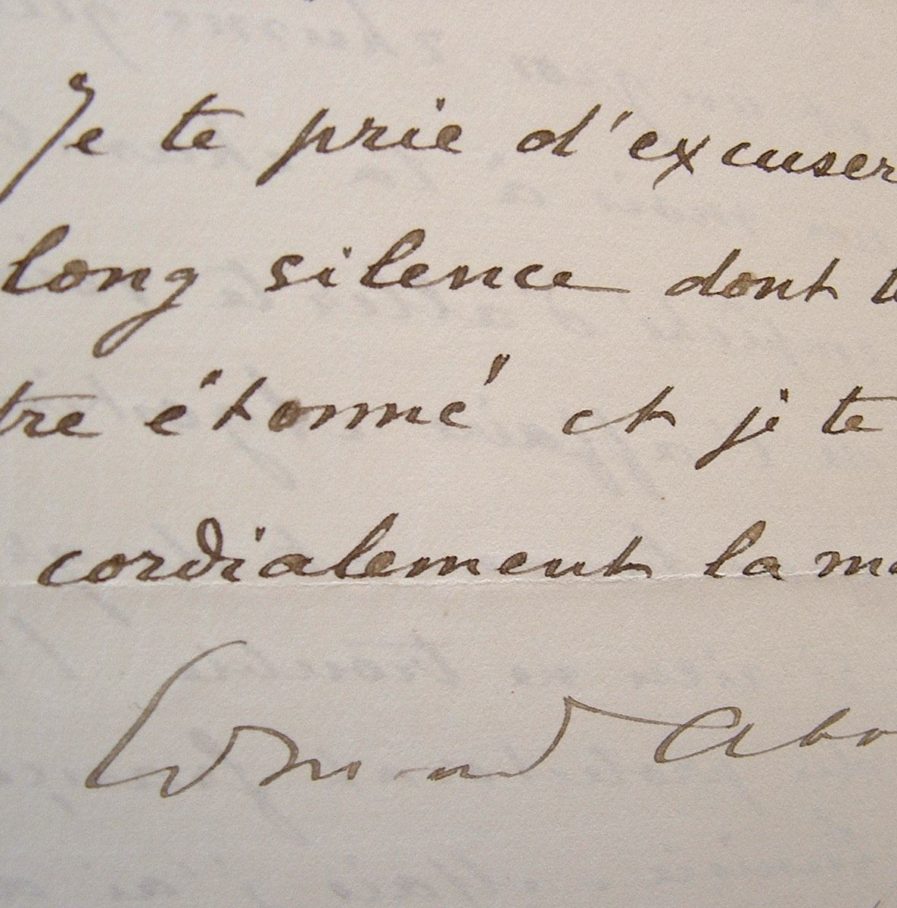 Je te prie d'excuser
long silence dont t
tre étonné et je te
cordialement la m
Edmond Abo